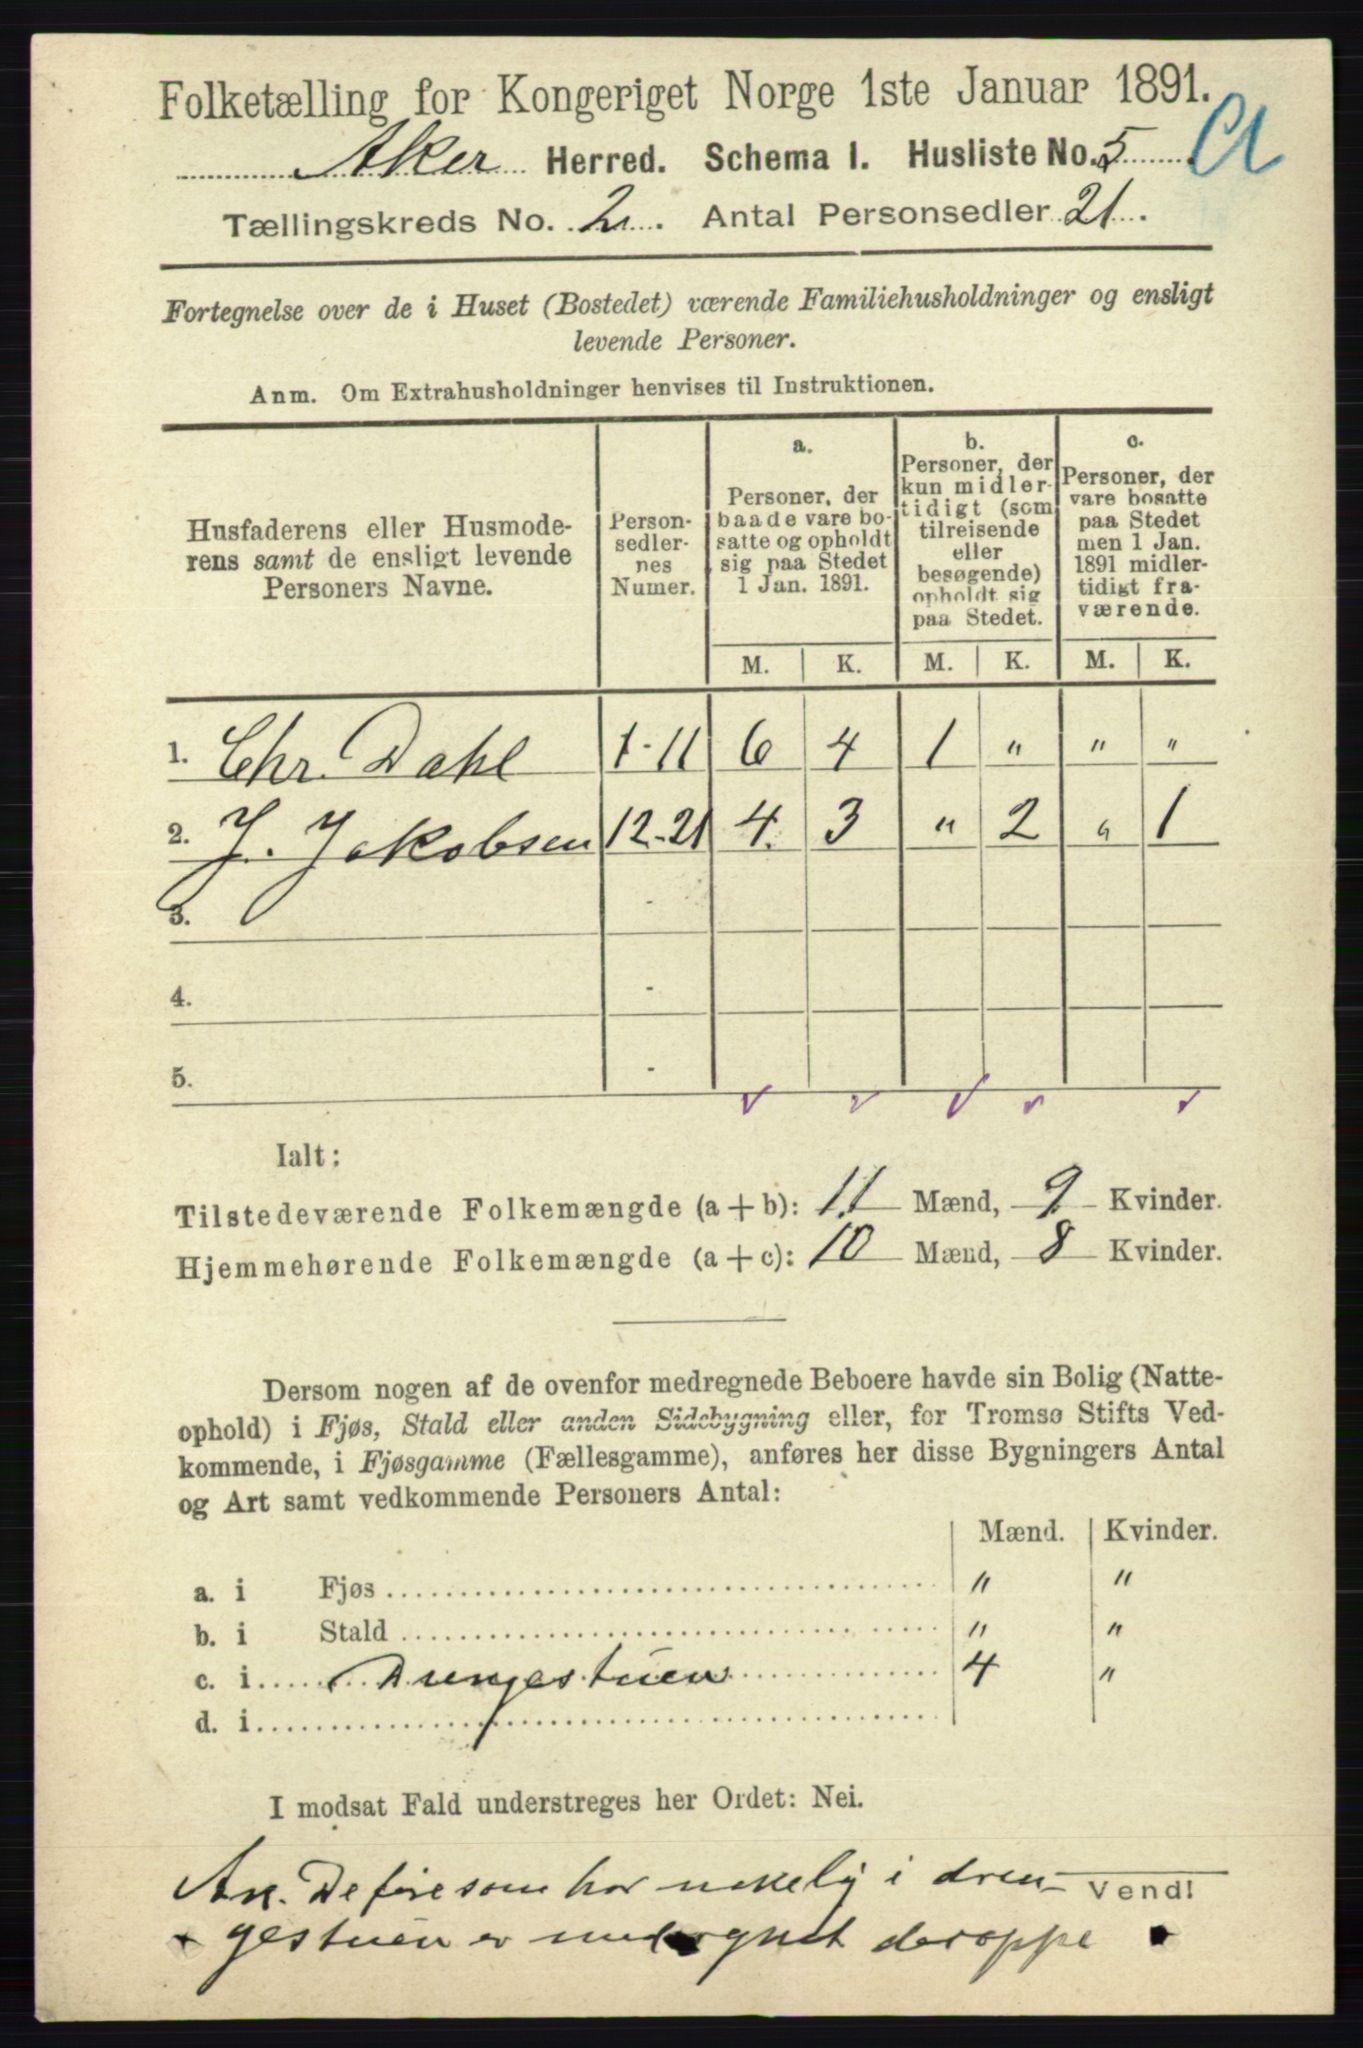 Folketælling for Kongeriget Norge 1ste Januar 1891.
Aker Herred. Schema I. Husliste No. 5. Cl
Tællingskreds No. 2. Antal Personsedler 21.
Fortegnelse over de i Huset (Bostedet) værende Familiehusholdninger og ensligt
levende Personer.
Anm. Om Extrahusholdninger henvises til Instruktionen.
Husfaderens eller Husmode-
rens samt de ensligt levende
Personers Navne.
Person-
sedler-
nes
Numer.
a.
Personer, der
baade vare bo-
satte og opholdt
sig paa Stedet
1 Jan. 1891.
b.
Personer, der
kun midler-
tidigt (som
tilreisende
eller
besøgende)
opholdt sig
paa Stedet.
c.
Personer, der
vare bosatte
paa Stedet
men 1 Jan.
1891 midler-
tidigt fra-
værende.
M. K. M. K. M. K.
1. Chr. Dahl 1-11 6 4 1 " " "
2. J. Jakobsen 12-21 4. 3 " 2 " 1
3. -
4. -
5. -
Ialt:
Tilstedeværende Folkemængde (a + b): 11 Mænd, 9 Kvinder.
Hjemmehørende Folkemængde (a + c): 10 Mænd, 8 Kvinder.
Dersom nogen af de ovenfor medregnede Beboere havde sin Bolig (Natte-
ophold) i Fjøs, Stald eller anden Sidebygning eller, for Tromsø Stifts Ved-
kommende, i Fjøsgamme (Fællesgamme), anføres her disse Bygningers Antal
og Art samt vedkommende Personers Antal:
Mænd. Kvinder.
a. i Fjøs " "
b. i Stald " "
c. i Drengestuen 4 "
d. i
I modsat Fald understreges her Ordet: Nei.
De fire som har i dren- Vend!
gestuen er medregnet deroppe